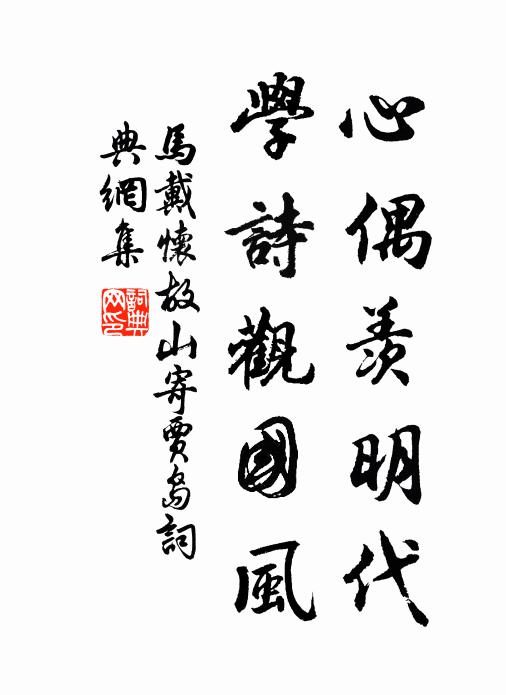 心偶羨明代
學詩觀國風
馬戴懷故山寄賈島詞
典網集
詞典
网印